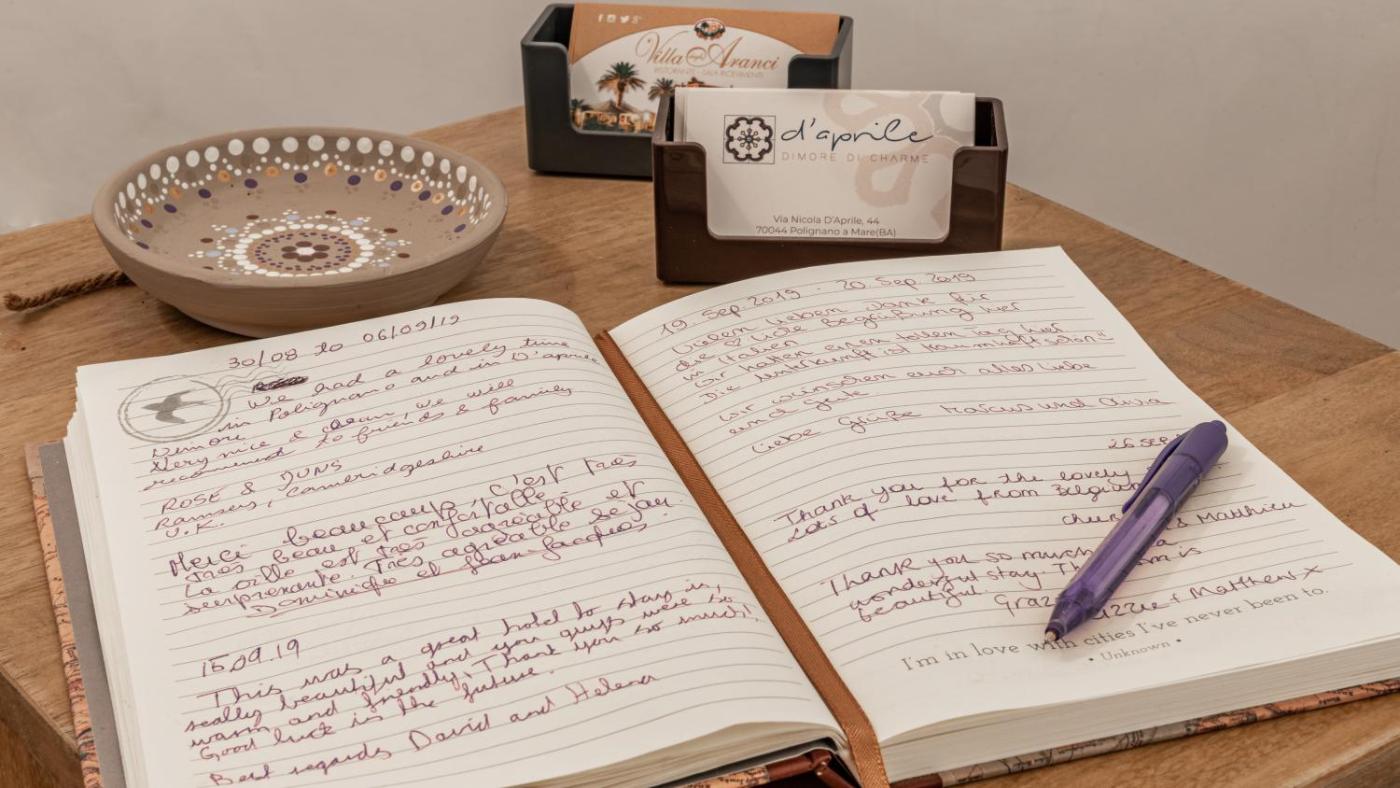 Villa Aranci
RISTORANTE - SALA RICEVIMENTI
d'aprile
DIMORE DI CHARME
Via Nicola D'Aprile, 44
70044 Polignano a Mare(BA)
30/08 to 06/09/19
We had a lovely time
in Polignano and in D'aprile
Dimore.
Very nice & clean, we will
recommend to friends & family
ROSE &
Ramsey, Cambridgeshire
U.K.
Merci beaucoup, c'est très
très beau et confortable.
La ville est très agréable et
surprenante. Très agréable séjour.
Dominique et Jean Jacques.
15.09.19
This was a great hotel to stay in,
really beautiful and you guys were so
warm and friendly. Thank you so much!
Good luck in the future.
Best regards David and Helena
19. Sep. 2019 - 20. Sep. 2019
Vielen lieben Dank für
die liebe Begrüßung hier
in Italien
Wir hatten einen tollen Tag hier
Die Unterkunft ist traumhaft schön
Wir wünschen euch alles Liebe
und Gute
Liebe Grüße Marcus und
26 sep
Thank you for the lovely
Lots of love from Belgium
& Matthieu
Thank you so much
wonderful stay. is
beautiful. & Matthew x
I'm in love with cities I've never been to.
• Unknown •